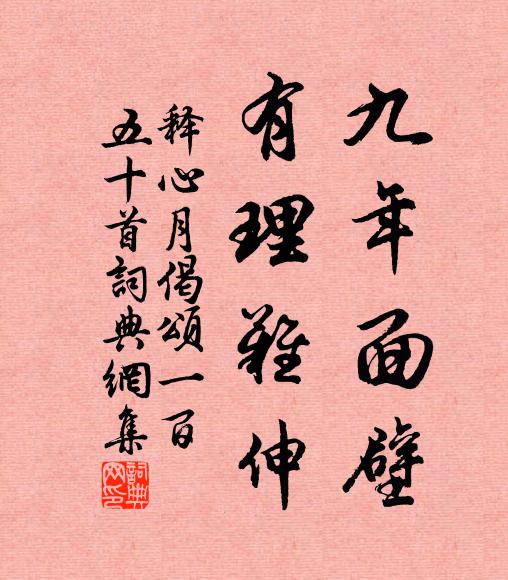 九年面壁
有理難伸
释心月偈頌一百
五十首詞典網集
詞典
网印